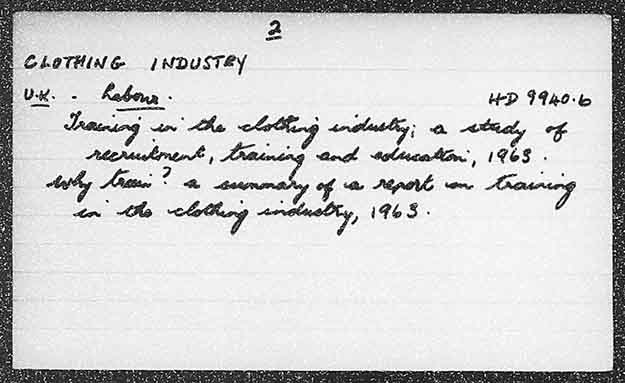 2
CLOTHING INDUSTRY
U.K. - Labour. HD 9940.6
Training in the clothing industry; a study of
recruitment, training and education, 1963.
Why train? a summary of a report on training
in the clothing industry, 1963.